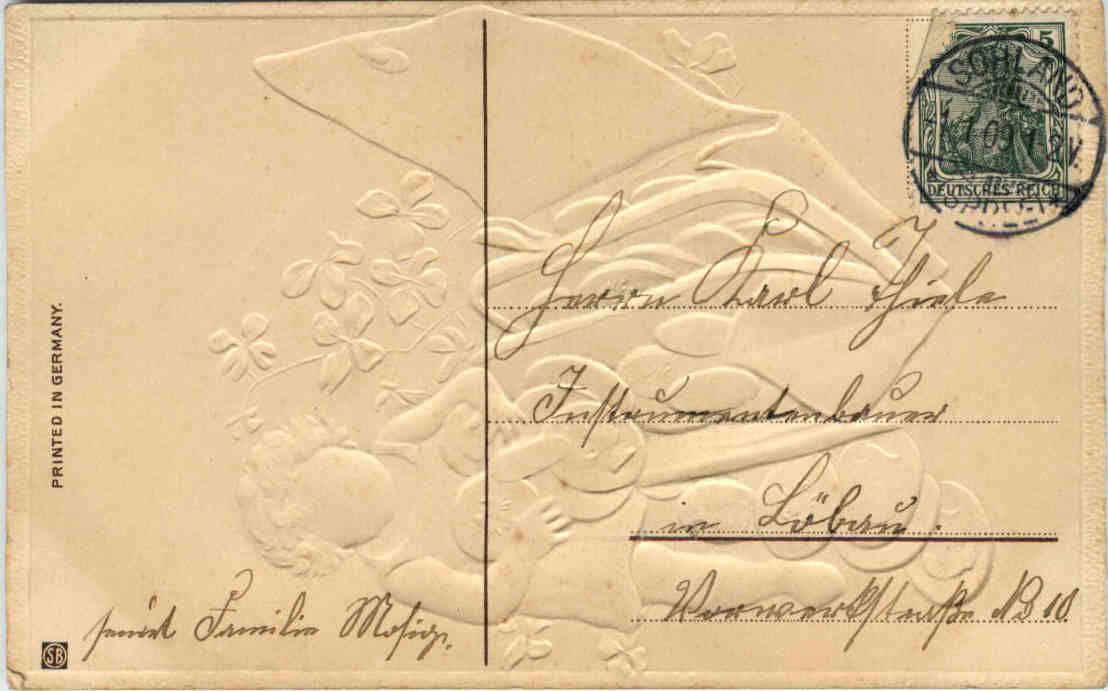 PRINTED IN GERMANY.
5
SOHLAND
1.1.09.1
DEUTSCHES REICH
Herrn Karl Thiele
Instrumentenbauer
in Löbau.
Vorwerkstraße No 10.
Familie Mosig.
SB